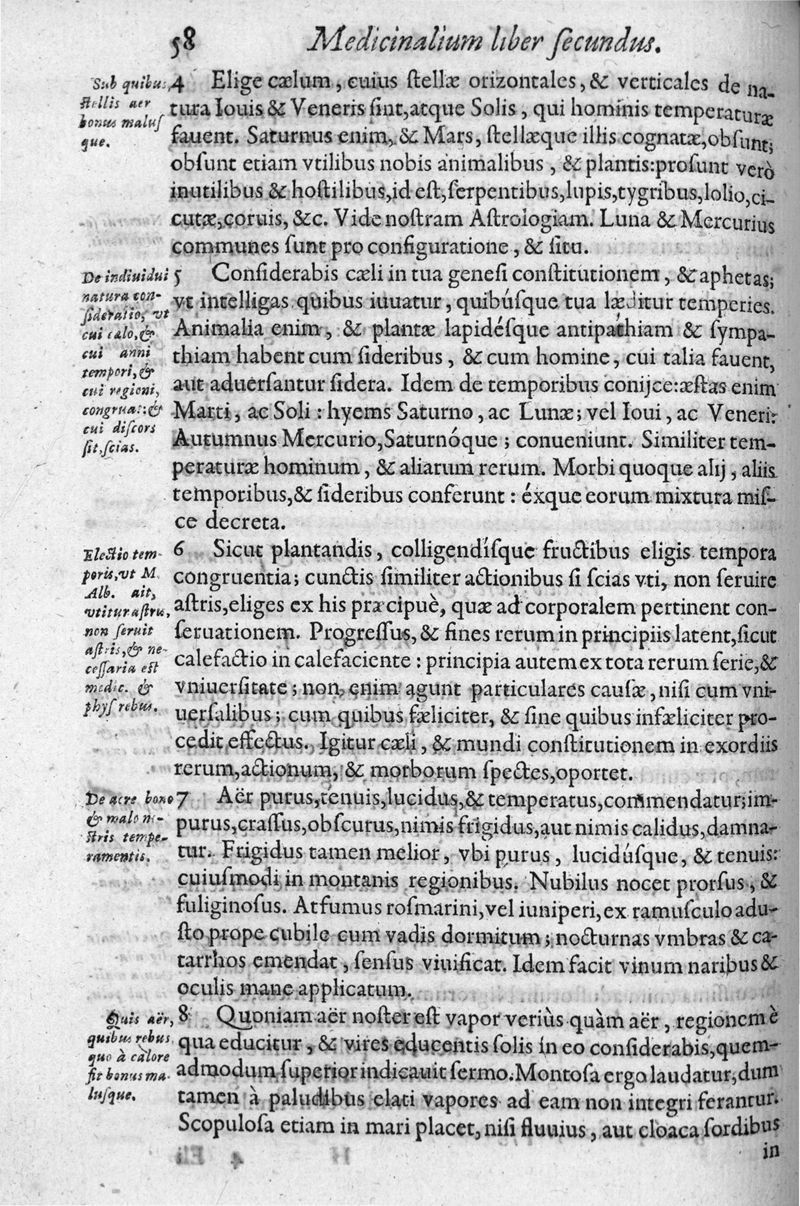 58 Medicinalium liber ſecundus.
Sub quibus
ſtellis aer
bonus maluſ
que.
4 Elige cælum, cuius ſtellæ orizontales, & verticales de na-
tura Iouis & Veneris ſint, atque Solis, qui hominis temperaturæ
fauent. Saturnus enim, & Mars, ſtellæque illis cognatæ, obſunt;
obſunt etiam vtilibus nobis animalibus, & plantis: proſunt verò
inutilibus & hoſtilibus, id eſt, ſerpentibus, lupis, tygribus, lolio, ci-
cutæ, coruis, &c. Vide noſtram Aſtrologiam. Luna & Mercurius
communes ſunt pro configuratione, & ſitu.
De indiuidui
natura con-
ſideratio, vt
cui cælo, &
cui anni
tempori, &
cui regioni,
congruat: &
cui diſcors
ſit, ſcias.
5 Conſiderabis cæli in tua geneſi conſtitutionem, & aphetas;
vt intelligas quibus iuuatur, quibúſque tua læditur temperies.
Animalia enim, & plantæ lapidéſque antipathiam & ſympa-
thiam habent cum ſideribus, & cum homine, cui talia fauent,
aut aduerſantur ſidera. Idem de temporibus conijce: æſtas enim
Marti, ac Soli: hyems Saturno, ac Lunæ; vel Ioui, ac Veneri:
Autumnus Mercurio, Saturnóque; conueniunt. Similiter tem-
peraturæ hominum, & aliarum rerum. Morbi quoque alij, aliis
temporibus, & ſideribus conferunt: éxque eorum mixtura miſ-
ce decreta.
Electio tem-
poris, vt M.
Alb. ait,
vtitur aſtris,
non ſeruit
aſtris, & ne-
ceſſaria eſt
medic. &
phyſ rebus.
6 Sicut plantandis, colligendíſque fructibus eligis tempora
congruentia; cunctis ſimiliter actionibus ſi ſcias vti, non ſeruire
aſtris, eliges ex his præcipuè, quæ ad corporalem pertinent con-
ſeruationem. Progreſſus, & fines rerum in principiis latent, ſicut
calefactio in calefaciente: principia autem ex tota rerum ſerie, &
vniuerſitate; non enim agunt particulares cauſæ, niſi cum vni-
uerſalibus; cum quibus fæliciter, & ſine quibus infæliciter pro-
cedit effectus. Igitur cæli, & mundi conſtitutionem in exordiis
rerum, actionum, & morborum ſpectes, oportet.
De aere bono
& malo no-
ſtris tempe-
ramentis.
7 Aër purus, tenuis, lucidus, & temperatus, commendatur; im-
purus, craſſus, obſcurus, nimis frigidus, aut nimis calidus, damna-
tur. Frigidus tamen melior, vbi purus, lucidúſque, & tenuis:
cuiuſmodi in montanis regionibus. Nubilus nocet prorſus, &
fuliginoſus. At fumus roſmarini, vel iuniperi, ex ramuſculo adu-
ſto prope cubile cum vadis dormitum; nocturnas vmbras & ca-
tarrhos emendat, ſenſus viuificat. Idem facit vinum naribus &
oculis mane applicatum.
Quis aër,
quibus rebus
quo à calore
fit bonus ma-
luſque.
8 Quoniam aër noſter eſt vapor veriùs quàm aër, regionem è
qua educitur, & vires educentis ſolis in eo conſiderabis, quem-
admodum ſuperior indicauit ſermo. Montoſa ergo laudatur, dum
tamen à paludibus elati vapores ad eam non integri ferantur.
Scopuloſa etiam in mari placet, niſi fluuius, aut cloaca ſordibus
in